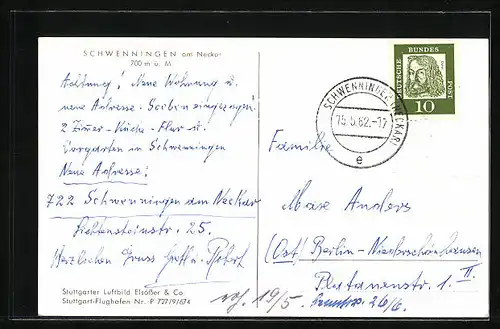 SCHWENNINGEN am Neckar
700 m ü. M.
Achtung! Neue Wohnung u.
neue Adresse. Soeben eingezogen!
2 Zimer - Küche - Flur u.
Vorgarten in Schwenningen
Neue Adresse:
722 Schwenningen am Neckar
Lichtensteinstr. 25.
Herzlichen Gruss
Stuttgarter Luftbild Elsäßer & Co.
Stuttgart-Flughafen Nr. P 727/9/674
DEUTSCHE BUNDES POST
Dürer
10
SCHWENNINGEN (NECKAR)
15.5.62.-17
e
Familie
Max Anders
(Ost) Berlin - Niederschönhausen
Platanenstr. 1.
II.
19/5.
26/6.